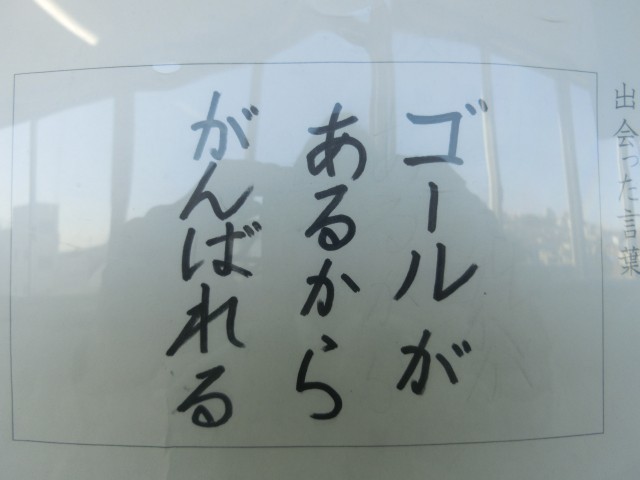 出会った言葉
ゴールが
あるから
がんばれる